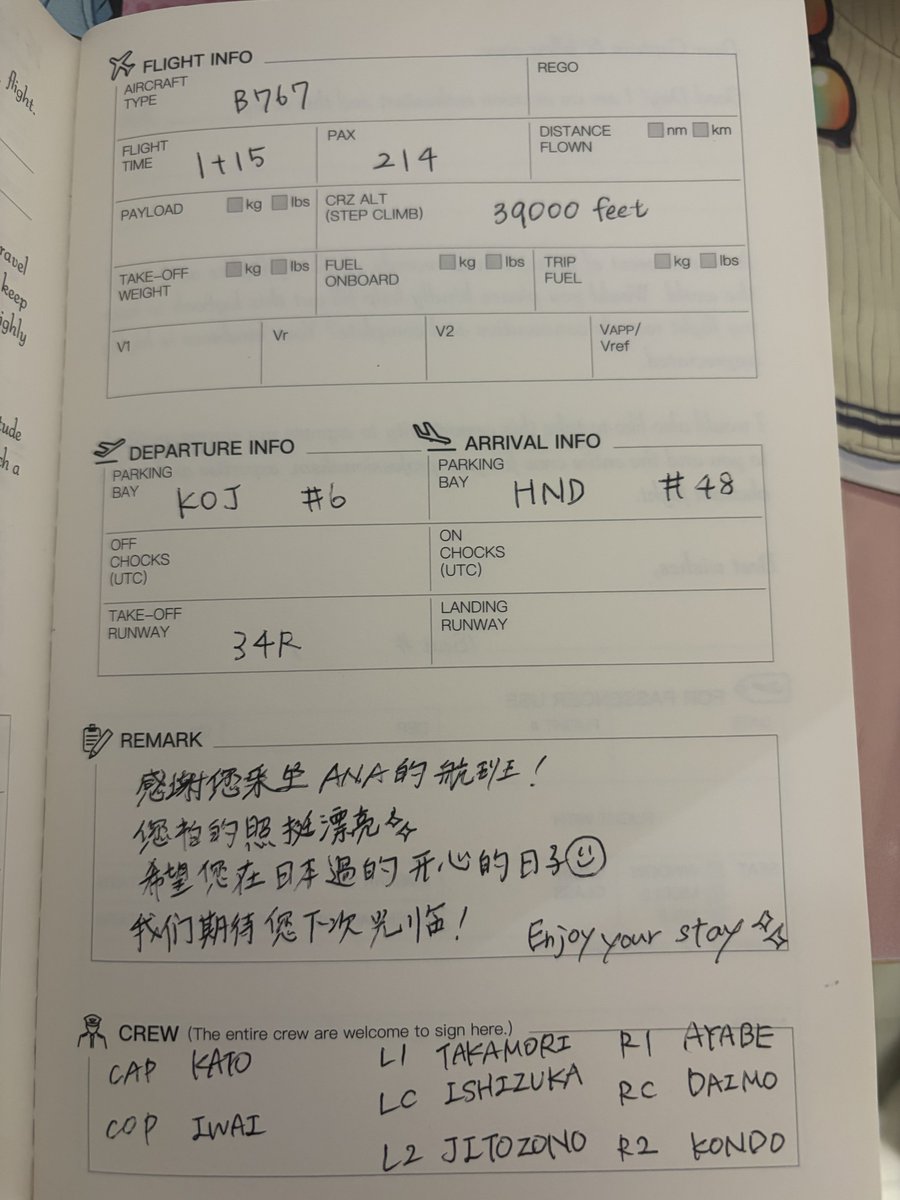 flight.
ravel
keep
ighly
tude
ch a
FLIGHT INFO
AIRCRAFT TYPE B767
REGO
FLIGHT TIME 1+15
PAX 214
DISTANCE FLOWN nm km
PAYLOAD kg lbs
CRZ ALT (STEP CLIMB) 39000 feet
TAKE-OFF WEIGHT kg lbs
FUEL ONBOARD kg lbs
TRIP FUEL kg lbs
V1
Vr
V2
VAPP/ Vref
DEPARTURE INFO
PARKING BAY KOJ #6
OFF CHOCKS (UTC)
TAKE-OFF RUNWAY 34R
ARRIVAL INFO
PARKING BAY HND #48
ON CHOCKS (UTC)
LANDING RUNWAY
REMARK
感谢您乘坐 ANA的航班!
您拍的照挺漂亮
希望您在日本過的开心的日子
我们期待您下次光临!
Enjoy your stay
CREW (The entire crew are welcome to sign here.)
CAP KATO L1 TAKAMORI R1 AYABE
LC ISHIZUKA RC DAIMO
COP IWAI L2 JITOZONO R2 KONDO